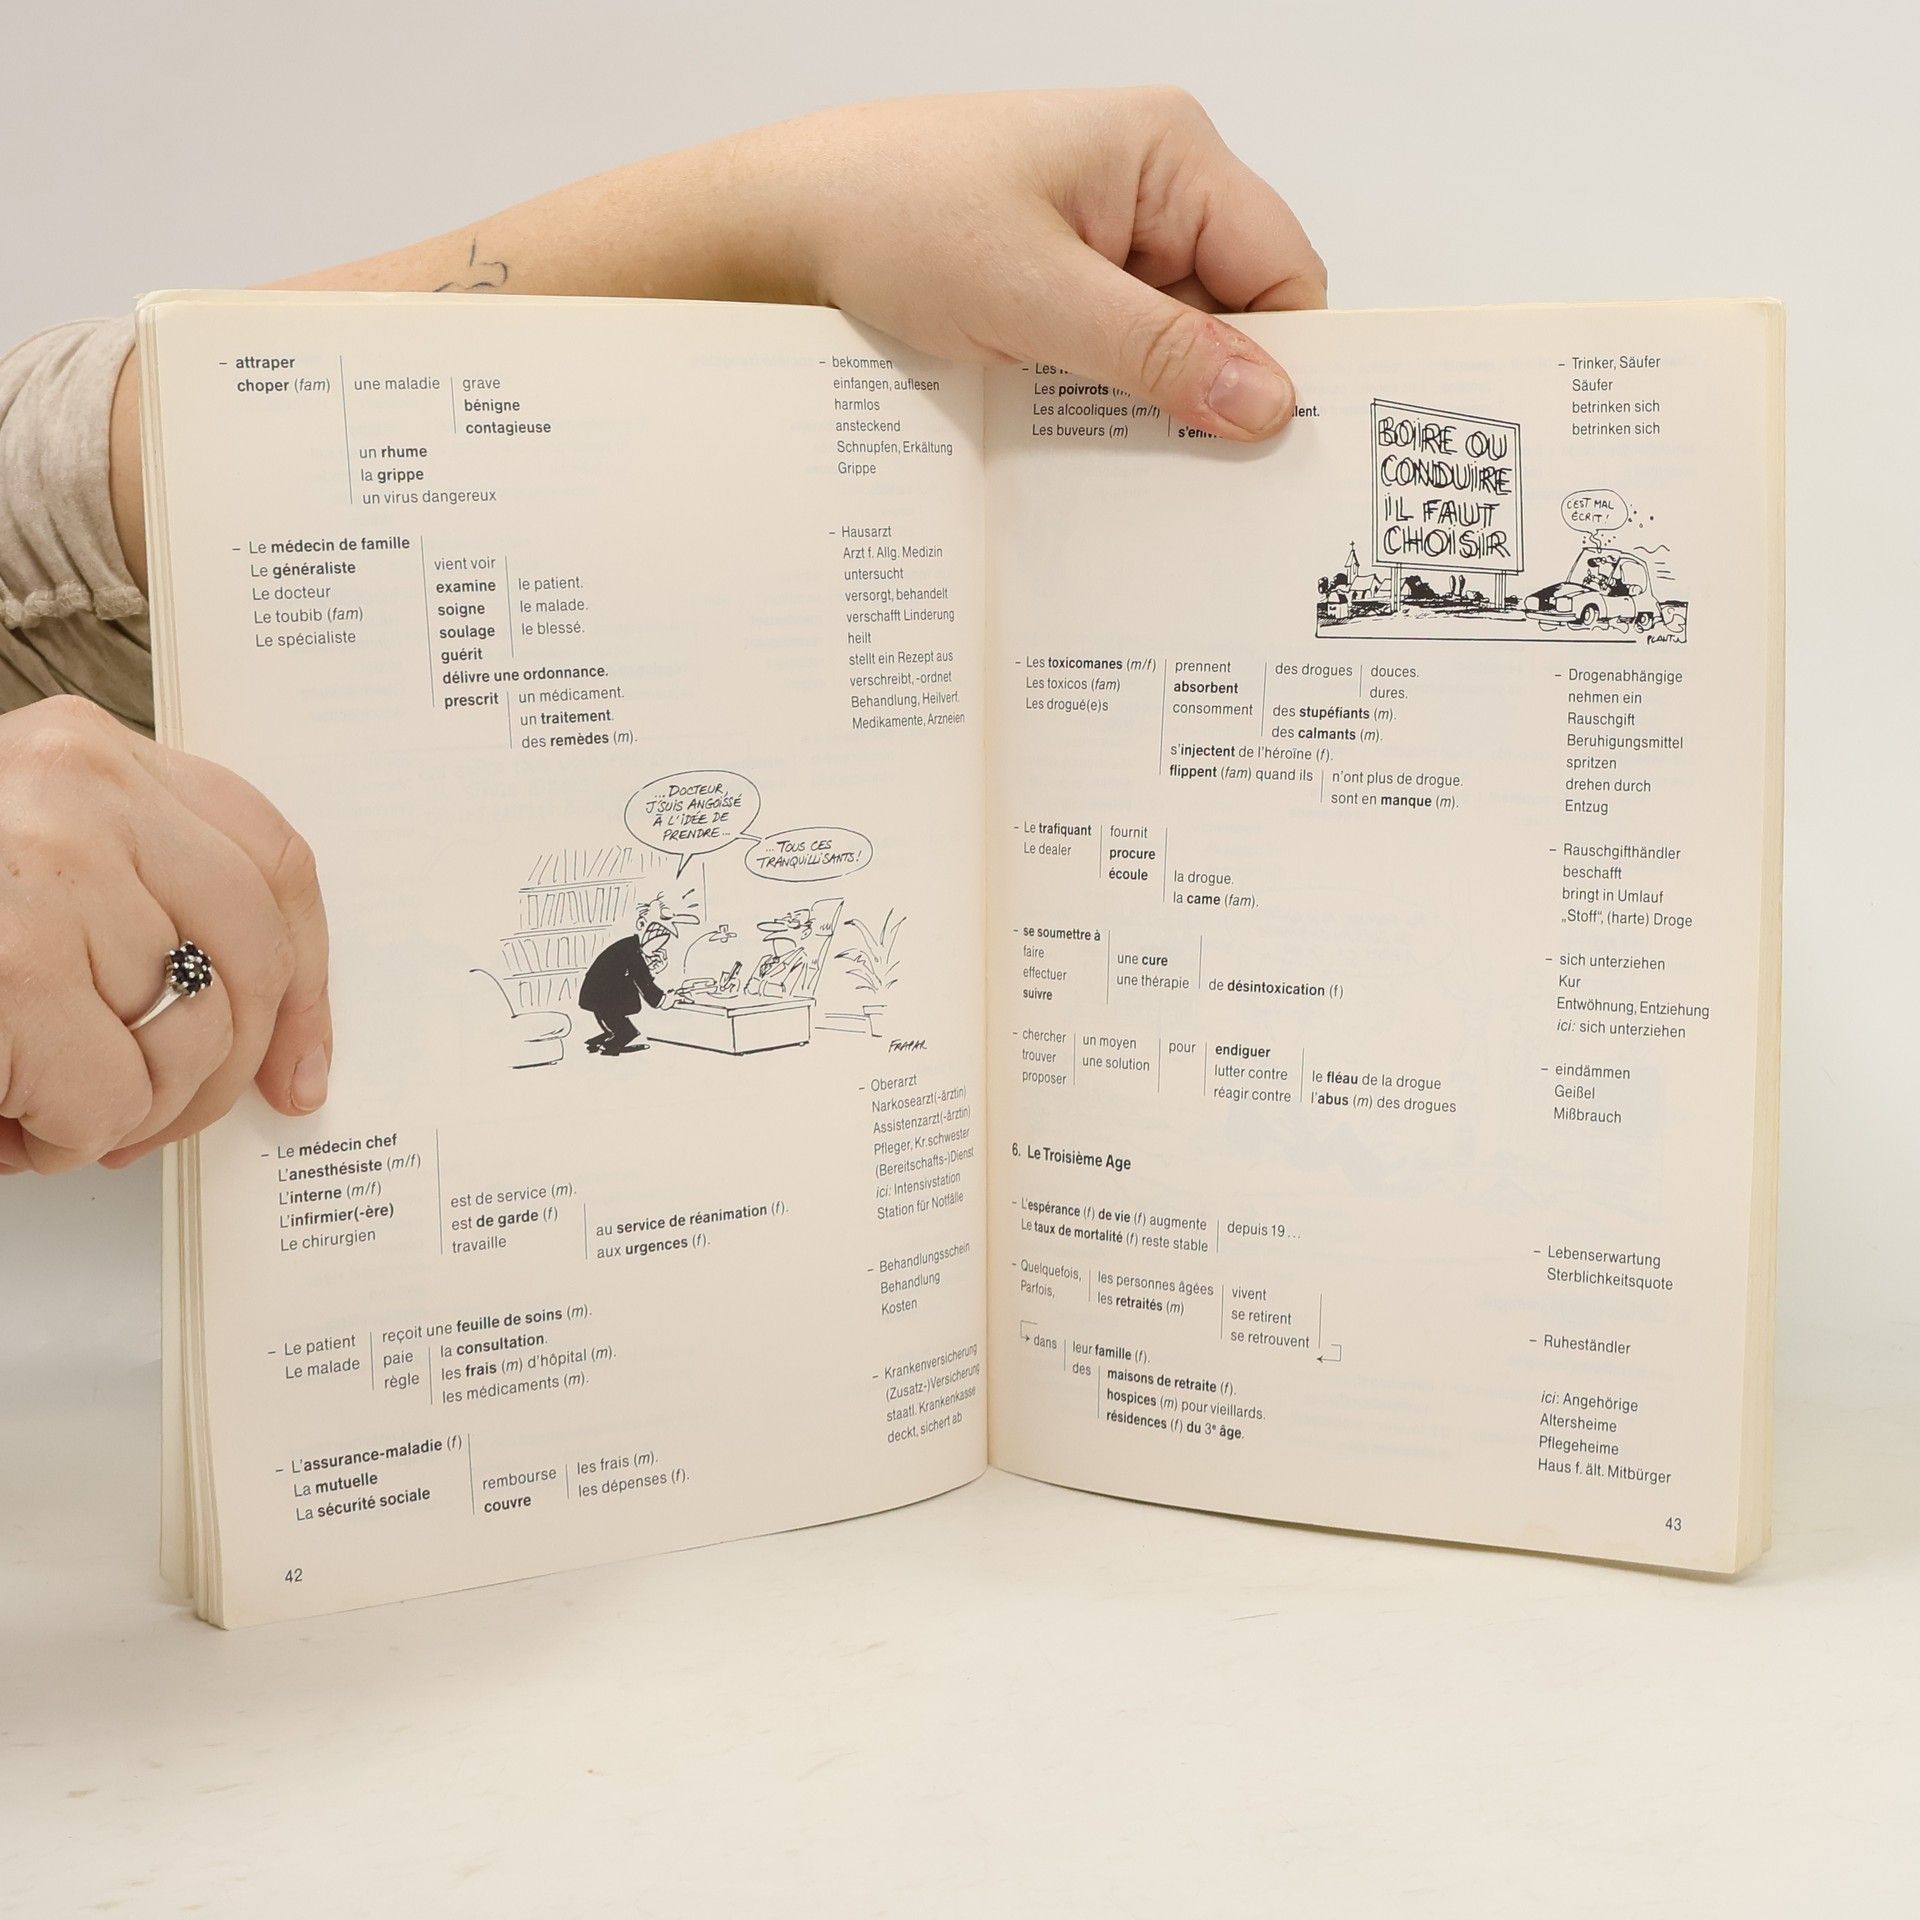 – attraper
choper (fam) une maladie grave
bénigne
contagieuse
un rhume
la grippe
un virus dangereux
– bekommen
einfangen, auflesen
harmlos
ansteckend
Schnupfen, Erkältung
Grippe
– Le médecin de famille
Le généraliste
Le docteur
Le toubib (fam)
Le spécialiste
vient voir
examine
soigne
soulage
guérit
le patient.
le malade.
le blessé.
délivre une ordonnance.
prescrit un médicament.
un traitement.
des remèdes (m).
– Hausarzt
Arzt f. Allg. Medizin
untersucht
versorgt, behandelt
verschafft Linderung
heilt
stellt ein Rezept aus
verschreibt, -ordnet
Behandlung, Heilverf.
Medikamente, Arzneien
...DOCTEUR,
J'SUIS ANGOISSÉ
À L'IDÉE DE
PRENDRE...
...TOUS CES
TRANQUILLISANTS!
FRAPAR
– Le médecin chef
L'anesthésiste (m/f)
L'interne (m/f)
L'infirmier(-ère)
Le chirurgien
est de service (m).
est de garde (f)
travaille
au service de réanimation (f).
aux urgences (f).
– Oberarzt
Narkosearzt(-ärztin)
Assistenzarzt(-ärztin)
Pfleger, Kr.schwester
(Bereitschafts-)Dienst
ici: Intensivstation
Station für Notfälle
– Le patient
Le malade
reçoit une feuille de soins (m).
paie
règle
la consultation.
les frais (m) d'hôpital (m).
les médicaments (m).
– Behandlungsschein
Behandlung
Kosten
– L'assurance-maladie (f)
La mutuelle
La sécurité sociale
rembourse
couvre
les frais (m).
les dépenses (f).
– Krankenversicherung
(Zusatz-)Versicherung
staatl. Krankenkasse
deckt, sichert ab
42
– Les
Les poivrots
Les alcooliques (m/f)
Les buveurs (m)
– Trinker, Säufer
Säufer
betrinken sich
betrinken sich
BOIRE OU
CONDUIRE
IL FAUT
CHOISIR
C'EST MAL
ÉCRIT!
PLANTU
– Les toxicomanes (m/f)
Les toxicos (fam)
Les drogué(e)s
prennent
absorbent
consomment
des drogues douces.
dures.
des stupéfiants (m).
des calmants (m).
s'injectent de l'héroïne (f).
flippent (fam) quand ils n'ont plus de drogue.
sont en manque (m).
– Drogenabhängige
nehmen ein
Rauschgift
Beruhigungsmittel
spritzen
drehen durch
Entzug
– Le trafiquant
Le dealer
fournit
procure
écoule
la drogue.
la came (fam).
– Rauschgifthändler
beschafft
bringt in Umlauf
„Stoff“, (harte) Droge
– se soumettre à
faire
effectuer
suivre
une cure
une thérapie
de désintoxication (f)
– sich unterziehen
Kur
Entwöhnung, Entziehung
ici: sich unterziehen
– chercher
trouver
proposer
un moyen
une solution
pour endiguer
lutter contre
réagir contre
le fléau de la drogue
l'abus (m) des drogues
– eindämmen
Geißel
Mißbrauch
6. Le Troisième Age
– L'espérance (f) de vie (f) augmente
Le taux de mortalité (f) reste stable
depuis 19...
– Lebenserwartung
Sterblichkeitsquote
– Quelquefois,
Parfois,
les personnes âgées
les retraités (m)
vivent
se retirent
se retrouvent
dans leur famille (f).
des maisons de retraite (f).
hospices (m) pour vieillards.
résidences (f) du 3e âge.
– Ruheständler
ici: Angehörige
Altersheime
Pflegeheime
Haus f. ält. Mitbürger
43